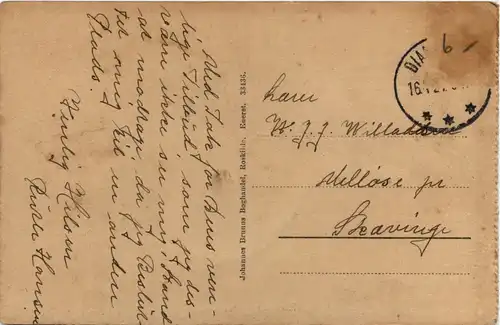 Med Tak for Deres ven-
lige Tilbud, som jeg des-
værre ikke ser mig i Stand
at modtage, da jeg
har en anden
Plads.
Venlig Hilsen
Ruth Hansen
Johannes Brunns Boghandel, Roskilde. Eneret. 33436.
16
b
Herr
N. J. J. Willadsen
Mellöse pr
Skævinge